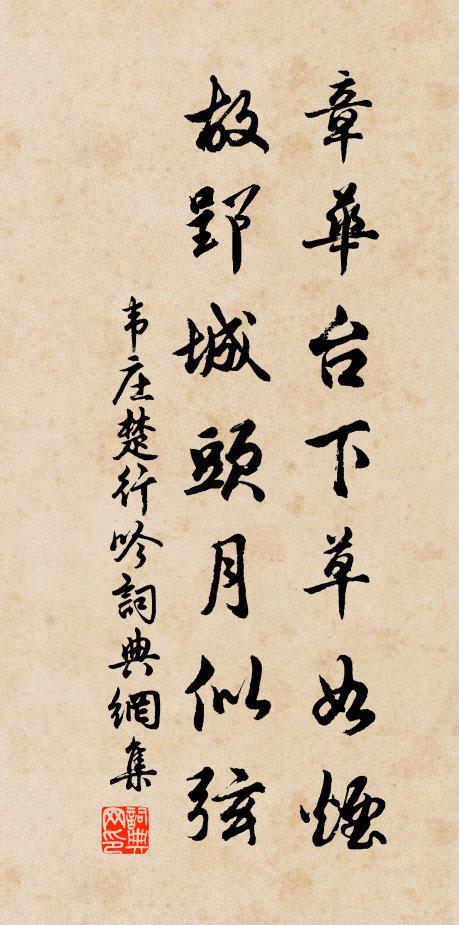 章華台下草如煙
故郢城頭月似弦
韦庄楚行吟詞典網集
詞典网印